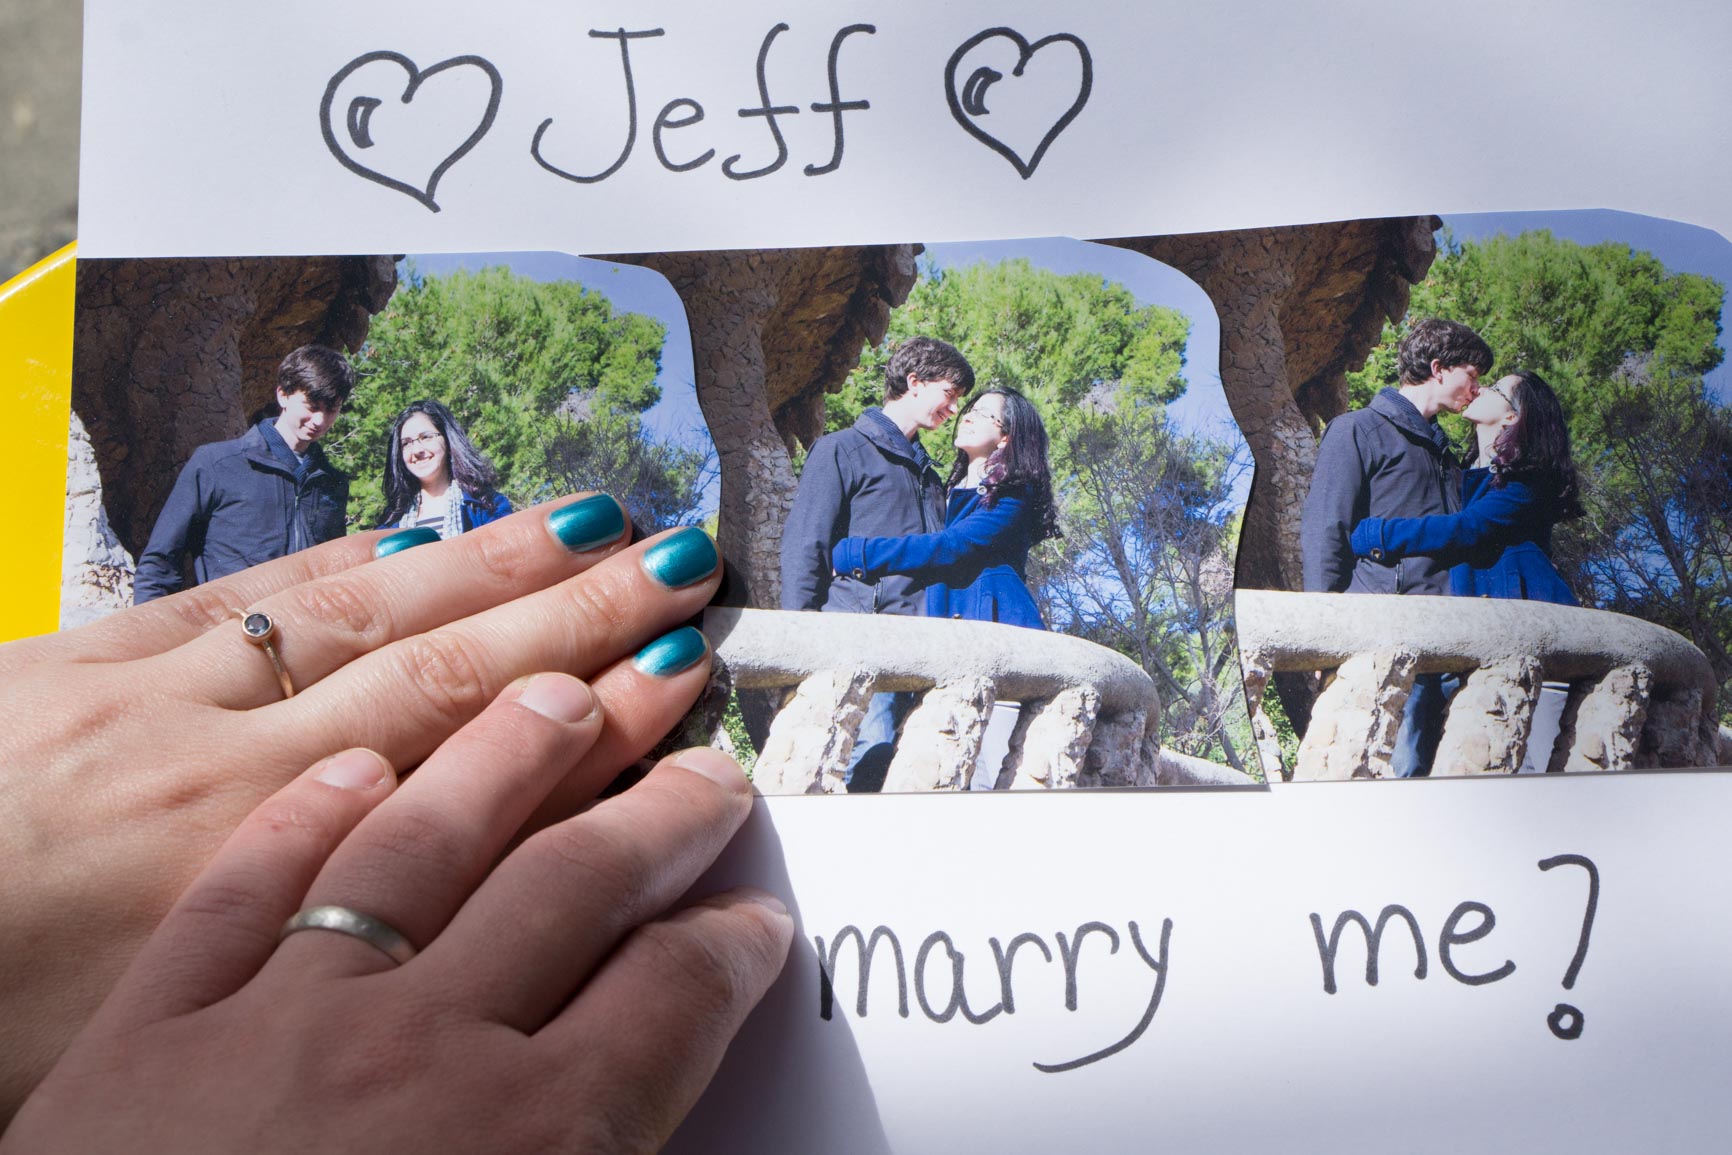 Jeff
marry me?